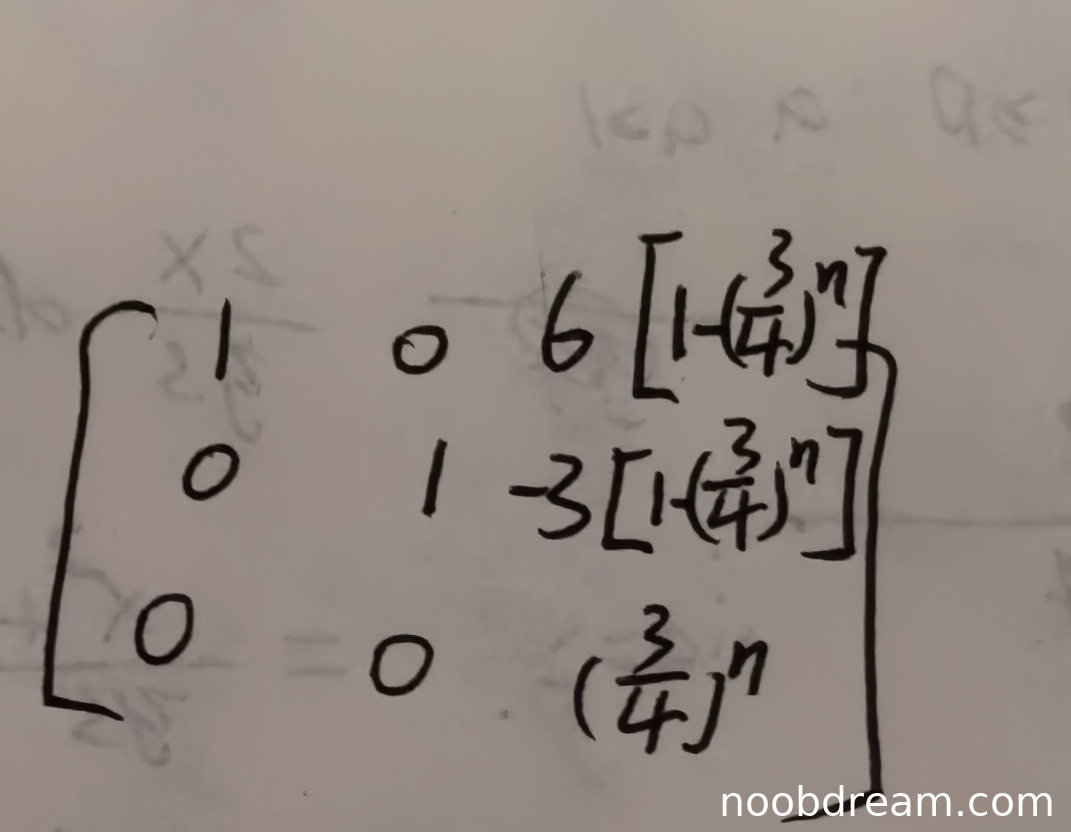 1 0 6[1-(3/4)^n]
0 1 -3[1-(3/4)^n]
0 0 (3/4)^n
noobdream.com